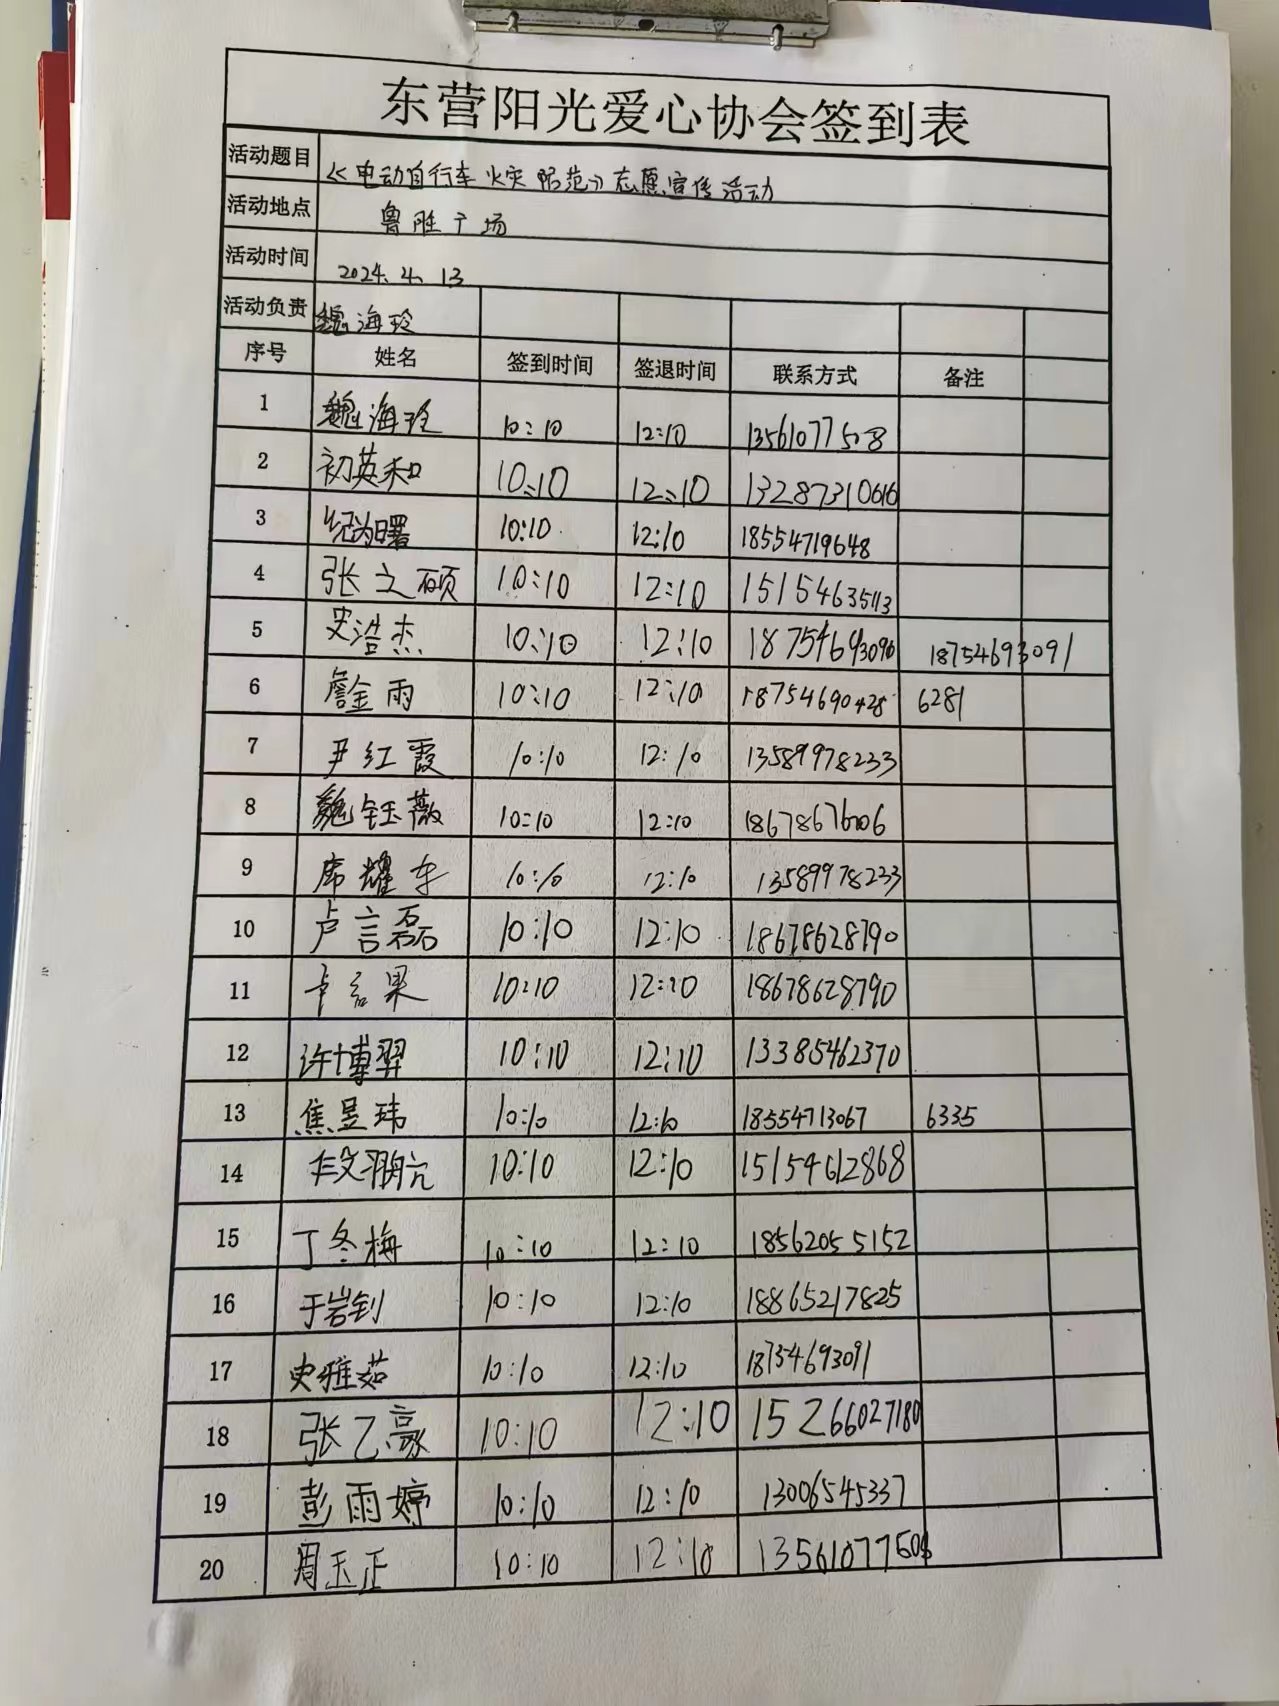 东营阳光爱心协会签到表
活动题目 《电动自行车火灾防范》志愿宣传活动
活动地点 鲁胜广场
活动时间 2024.4.13
活动负责 魏海玲
序号 姓名 签到时间 签退时间 联系方式 备注
1 魏海玲 10:10 12:10 13561077508
2 初英和 10:10 12:10 13287310616
3 纪为曙 10:10 12:10 18554719648
4 张之硕 10:10 12:10 15154635113
5 史浩杰 10:10 12:10 18754693090 18754693091
6 詹金雨 10:10 12:10 18754690428 6281
7 尹红霞 10:10 12:10 13589978233
8 魏钰薇 10:10 12:10 18678676006
9 席耀车 10:10 12:10 13589978233
10 卢言磊 10:10 12:10 18678628790
11 10:10 12:10 18678628790
12 许博羿 10:10 12:10 13385462370
13 焦昱玮 10:10 12:10 18554713067 6335
14 10:10 12:10 15154612868
15 丁冬梅 10:10 12:10 18562055152
16 于岩钊 10:10 12:10 18865217825
17 史雅茹 10:10 12:10 18754693091
18 张乙豪 10:10 12:10 15266027180
19 彭雨婷 10:10 12:10 13006545337
20 周玉正 10:10 12:10 13561077508